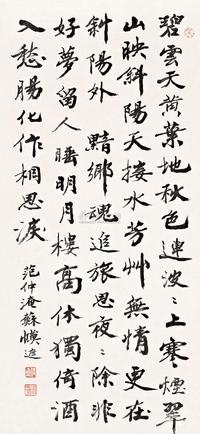 碧雲天黄葉地秋色連波々上寒煙翠
山映斜陽天接水芳艸無情更在
斜陽外黯鄉魂追旅思夜々除非
好夢留人睡明月樓高休獨倚酒
入愁腸化作相思淚
范仲淹蘇幙遮